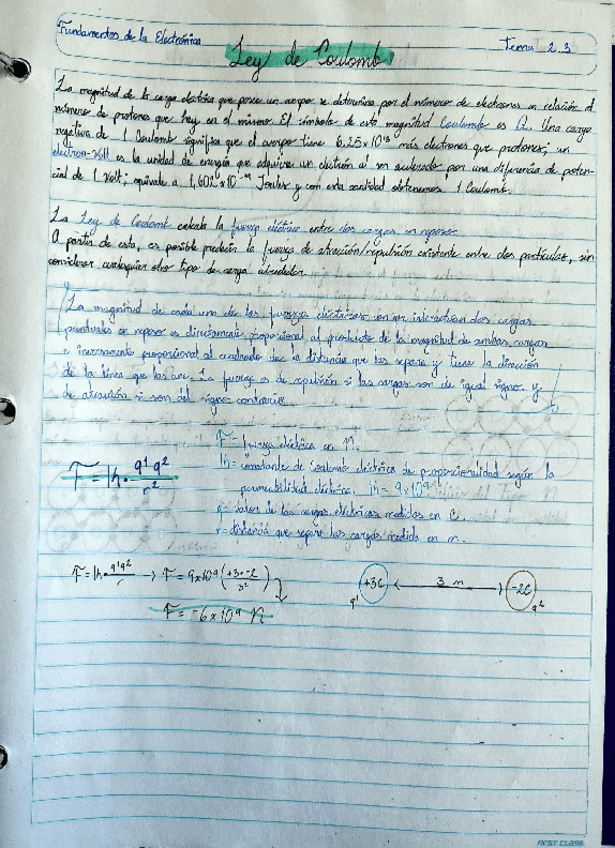 Fundamentos de la Electrónica
Tema 2.3
Ley de Coulomb
La magnitud de la carga eléctrica que posee un cuerpo se determina por el número de electrones en relación al
número de protones que hay en el mismo. El símbolo de esta magnitud Coulombs es Q. Una carga
negativa de 1 Coulomb significa que el cuerpo tiene 6,25x10¹⁸ más electrones que protones; un
electron-Volt es la unidad de energía que adquiere un electrón al ser acelerado por una diferencia de poten-
cial de 1 Volt; equivale a 1,602x10⁻¹⁹ Joules y con esta cantidad obtenemos 1 Coulomb.
La Ley de Coulomb calcula la fuerza eléctrica entre dos cargas en reposo.
A partir de esta, es posible predecir la fuerza de atracción/repulsión existente entre dos partículas, sin
considerar cualquier otro tipo de carga alrededor.
La magnitud de cada una de las fuerzas eléctricas con que interactúan dos cargas
puntuales en reposo es directamente proporcional al producto de la magnitud de ambas cargas
e inversamente proporcional al cuadrado de la distancia que las separa y tiene la dirección
de la línea que las une. La fuerza es de repulsión si las cargas son de igual signo, y
de atracción si son del signo contrario.
F= fuerza eléctrica en N.
K= constante de Coulomb eléctrica de proporcionalidad según la
F=K·q¹q²/r²
permeabilidad eléctrica. K=9x10⁹
q= valor de las cargas eléctricas medidas en C.
r= distancia que separa las cargas medida en m.
F=K·q¹q²/r → F=9x10⁹(+3·-2/3²)
+3C 3 m -2C
q¹ q²
F=-6x10⁹ N
FIRST CLASS